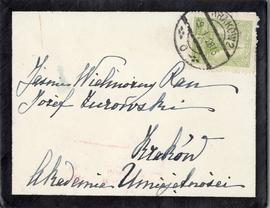 KRAKÓW 2
Jaśnie Wielmożny Pan
Józef Żurowski
Kraków
Akademia Umiejętności